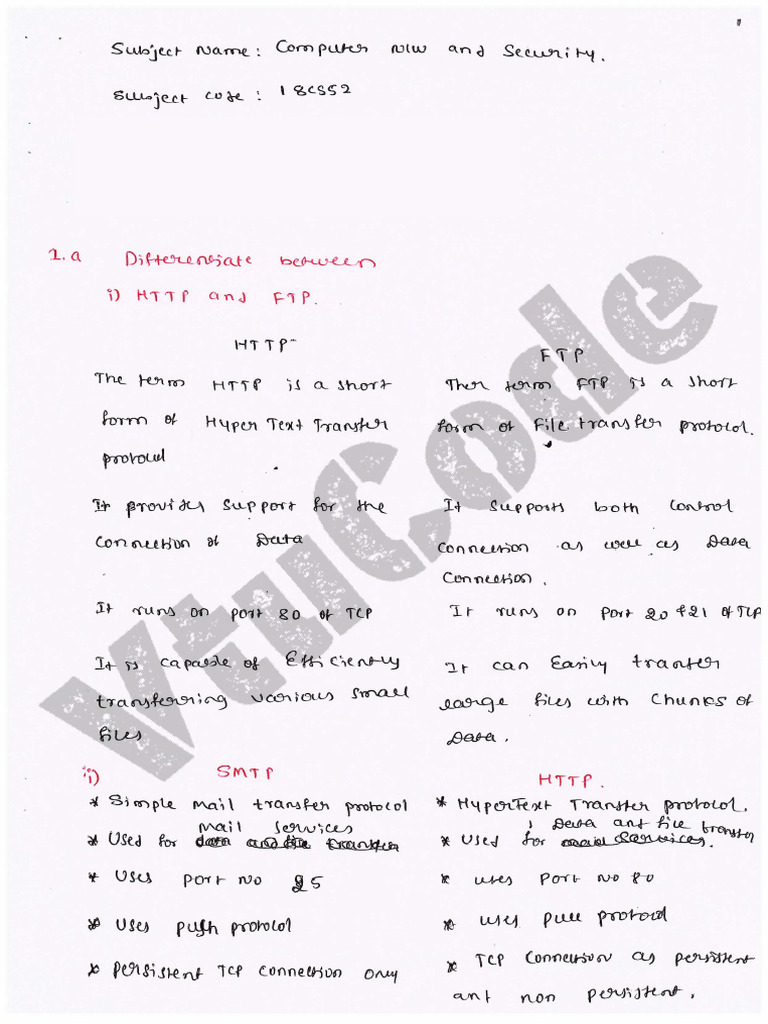 Subject Name: Computer N/W and Security.
Subject code: 18CS52
1.a Differentiate between
i) HTTP and FTP.
HTTP
The term HTTP is a short
form of HyperText Transfer
protocol
It provides support for the
connection of Data
It runs on port 80 of TCP
It is capable of Efficiently
transferring various small
files
FTP
Ther term FTP is a short
form of File transfer protocol.
It supports both control
connection as well as Data
connection.
It runs on port 20 & 21 of TCP
It can Easily transfer
large files with Chunks of
Data.
ii) SMTP
* Simple mail transfer protocol
mail services
* Used for data and file transfer
* Uses port no 25
* Uses push protocol
* persistent TCP connection only
HTTP.
* HyperText Transfer protocol.
, Data ant file transfer
* Used for mail services.
* uses port no 80
* uses pull protocol
* TCP connection as persistent
ant non persistent.
VtuCode